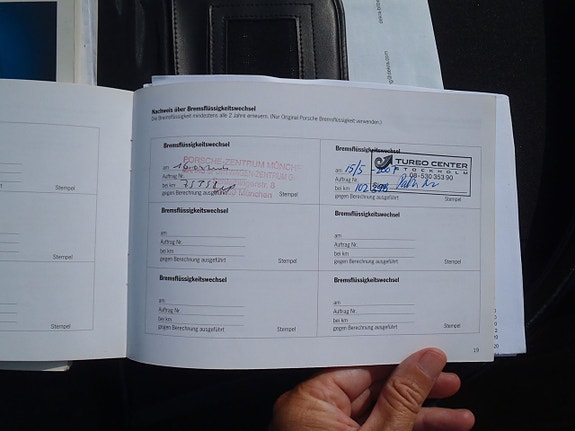 Nachweis über Bremsflüssigkeitswechsel
Die Bremsflüssigkeit mindestens alle 2 Jahre erneuern. (Nur Original Porsche Bremsflüssigkeit verwenden.)
Bremsflüssigkeitswechsel
PORSCHE-ZENTRUM MÜNCHE
am
Auftrag Nr.
bei km
München
gegen Berechnung ausgeführt Stempel
Bremsflüssigkeitswechsel
TURBO CENTER
STOCKHOLM
08-530 353 90
am 15/5
Auftrag Nr.
bei km 102
gegen Berechnung ausgeführt Stempel
Bremsflüssigkeitswechsel
am
Auftrag Nr.
bei km
gegen Berechnung ausgeführt Stempel
Bremsflüssigkeitswechsel
am
Auftrag Nr.
bei km
gegen Berechnung ausgeführt Stempel
Bremsflüssigkeitswechsel
am
Auftrag Nr.
bei km
gegen Berechnung ausgeführt Stempel
Bremsflüssigkeitswechsel
am
Auftrag Nr.
bei km
gegen Berechnung ausgeführt Stempel
19
Stempel
Stempel
Stempel